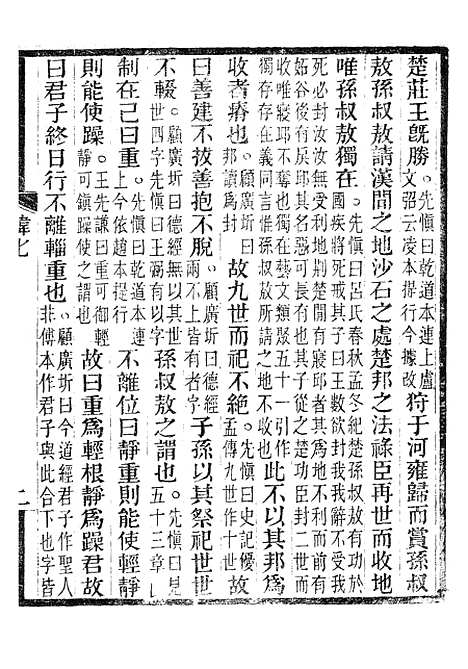 楚莊王既勝。先愼曰乾道本連上盧文弨云凌本提行今據改狩于河雍歸而賞孫叔
敖孫叔敖請漢閒之地沙石之處楚邦之法祿臣再世而收地
唯孫叔敖獨在。先愼曰呂氏春秋孟冬紀楚孫叔敖有功於國疾將死戒其子曰王數欲封我我辭不受我
死必封汝汝無受利地荆楚閒有寢邱者其爲地不利而前有妬谷後有戾邱其名惡可長有也其子從之楚功臣封二世而
收唯寢邱不奪也獨在藝文類聚五十一引作獨存存在義同孫叔敖所請此不以其邦爲
收者瘠也邦讀爲封故九世而祀不絕。先愼曰史記優孟傳九世作十世
曰善建不拔善抱不脫。顧廣圻曰德經兩不上皆有者字子孫以其祭祀世世
不輟。顧廣圻曰德經無以其世四字先愼曰王弼有以其孫叔敖之謂也。先愼曰見五十三章
制在己曰重。先愼曰乾道本連上今依趙本提行不離位曰靜重則能使輕靜
則能使躁。王先謙曰重可御輕靜可鎭躁使之謂也故曰重爲輕根靜爲躁君故
曰君子終日行不離輜重也。顧廣圻曰今道經君子作聖人非傅本作君子與此合下也字皆
韓七
二